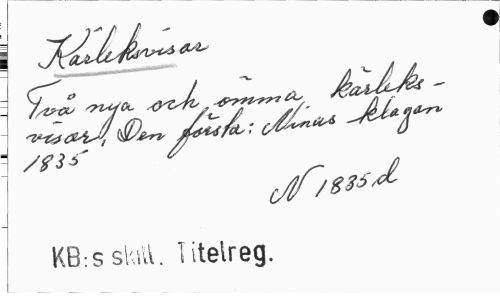 Kärleksvisar
Två nya och ömma kärleks-
visor, Den första: Minas klagan
1835
N 1835 d
KB:s skill. Titelreg.